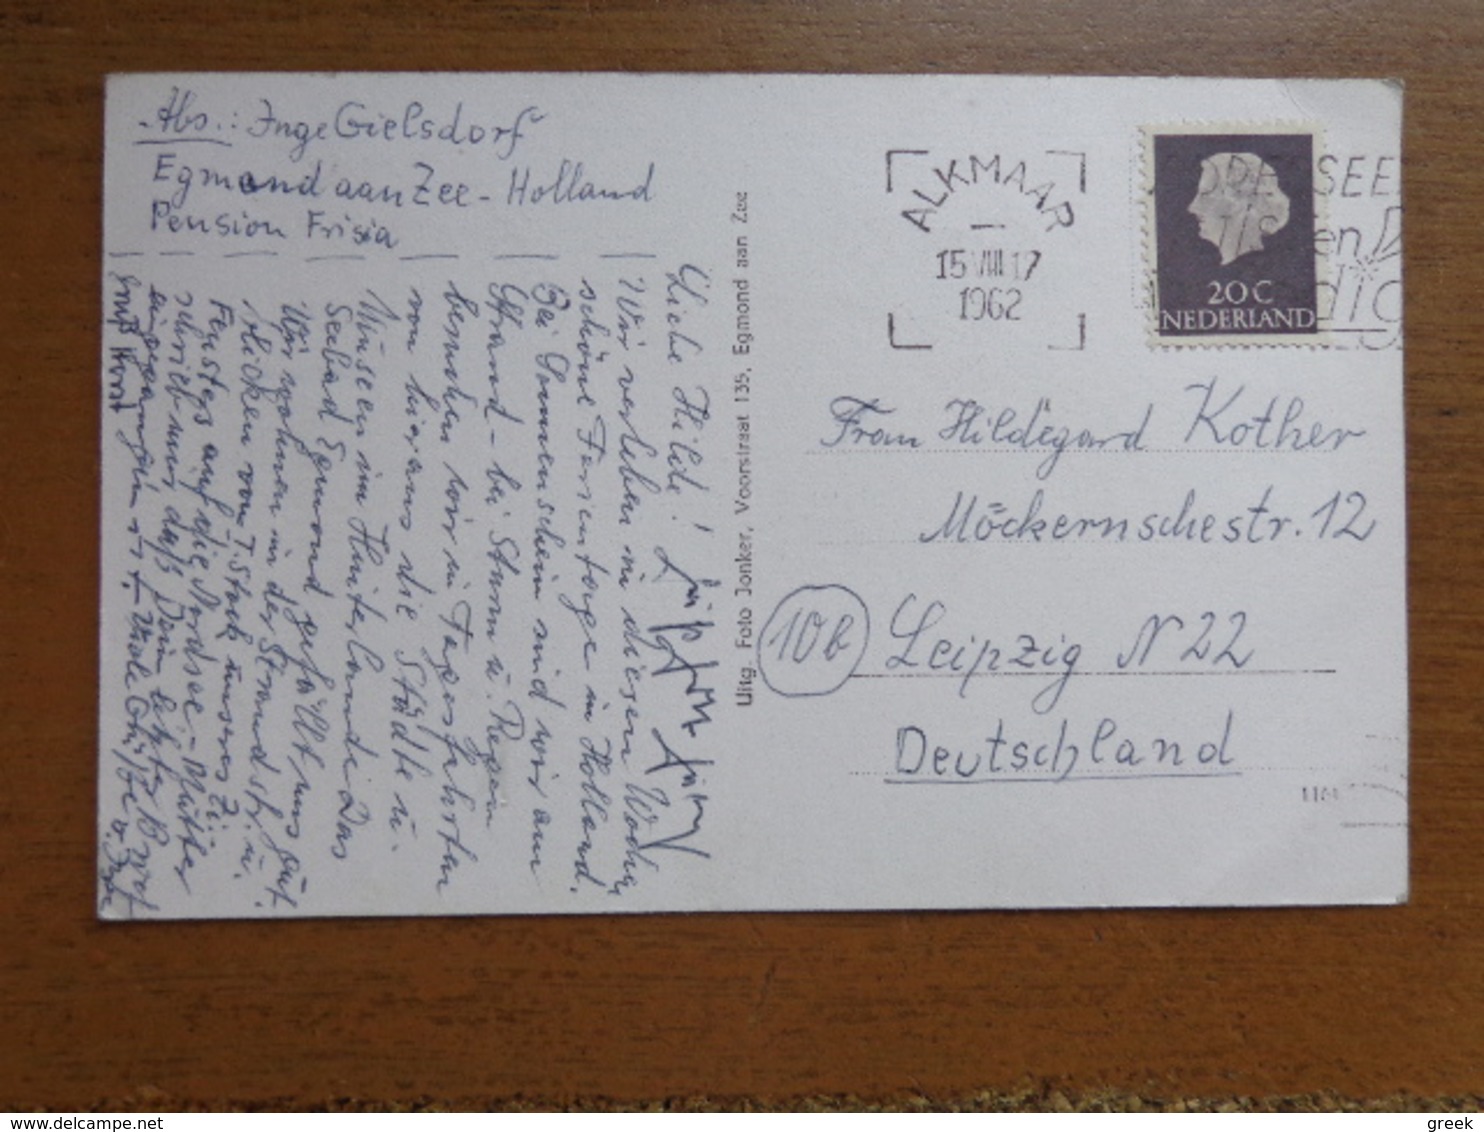 Abs.: Inge Gielsdorf
Egmond aan Zee - Holland
Pension Frisia
Liebe Hilde!
Wir verleben in diesen Wochen
schöne Ferientage in Holland.
Bei Sonnenschein sind wir am
Strand - bei Sturm u. Regen
besuchen wir in Tagesfahrten
von hier aus die Städte u.
Museen im Hinterland. Das
Seebad Egmond gefällt uns gut.
Wir wohnen in der Strandstr. u.
blicken vom 1. Stock unseres Zi.
Fensters auf die Nordsee. - Mutter
schrieb uns, daß Dein letzter Brief
eingegangen ist. Viele Grüße v. Inge
und Horst
Uitg. Foto Jonker, Voorstraat 135, Egmond aan Zee
ALKMAAR
15 VIII 17
1962
20 C
NEDERLAND
Frau Hildegard Kother
Möckernschestr. 12
10b
Leipzig N 22
Deutschland
greek